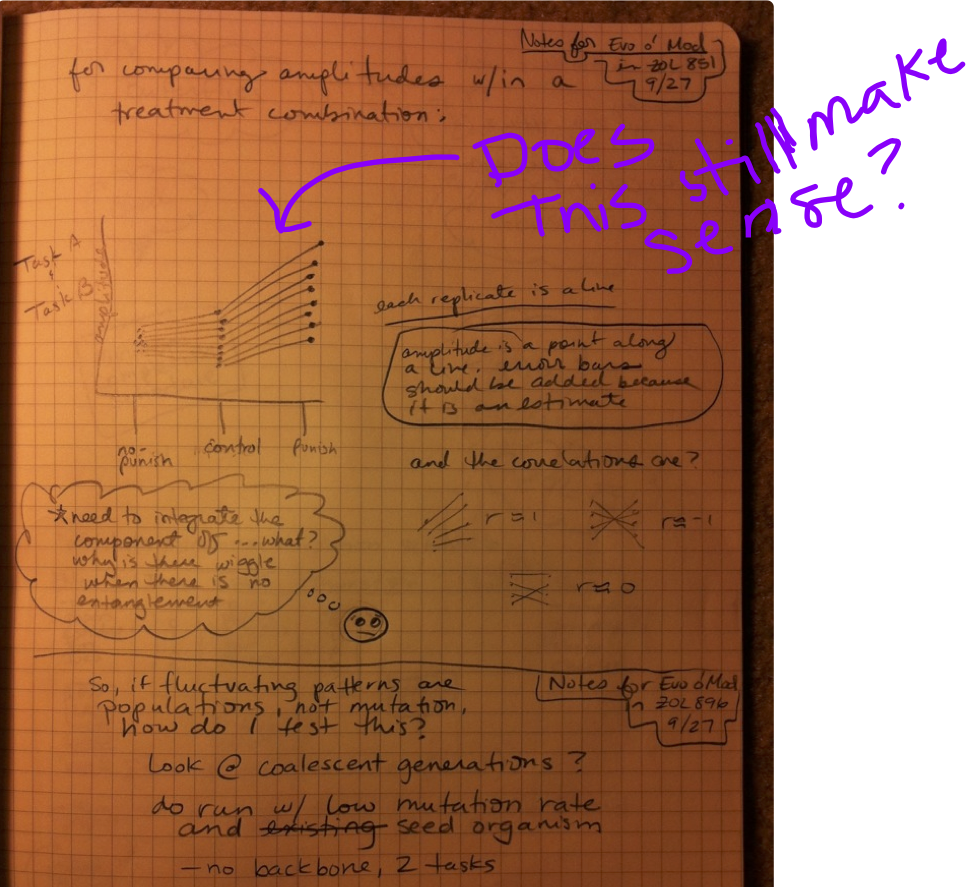 Notes for Evo o' Mod
in ZOL 851
9/27
for comparing amplitudes w/in a
treatment combination:
Does
This still make
sense?
Task A
&
Task B
amplitude
each replicate is a line
amplitude is a point along
a line. error bars
should be added because
it is an estimate
no-
punish
control
Punish
and the correlations are?
r ≈ 1
r ≈ -1
r ≈ 0
*need to integrate the
component of ... what?
why is there wiggle
when there is no
entanglement
So, if fluctuating patterns are
populations, not mutation,
how do I test this?
Notes for Evo o' Mod
in ZOL 896
9/27
Look @ coalescent generations?
do run w/ low mutation rate
and existing seed organism
- no backbone, 2 tasks